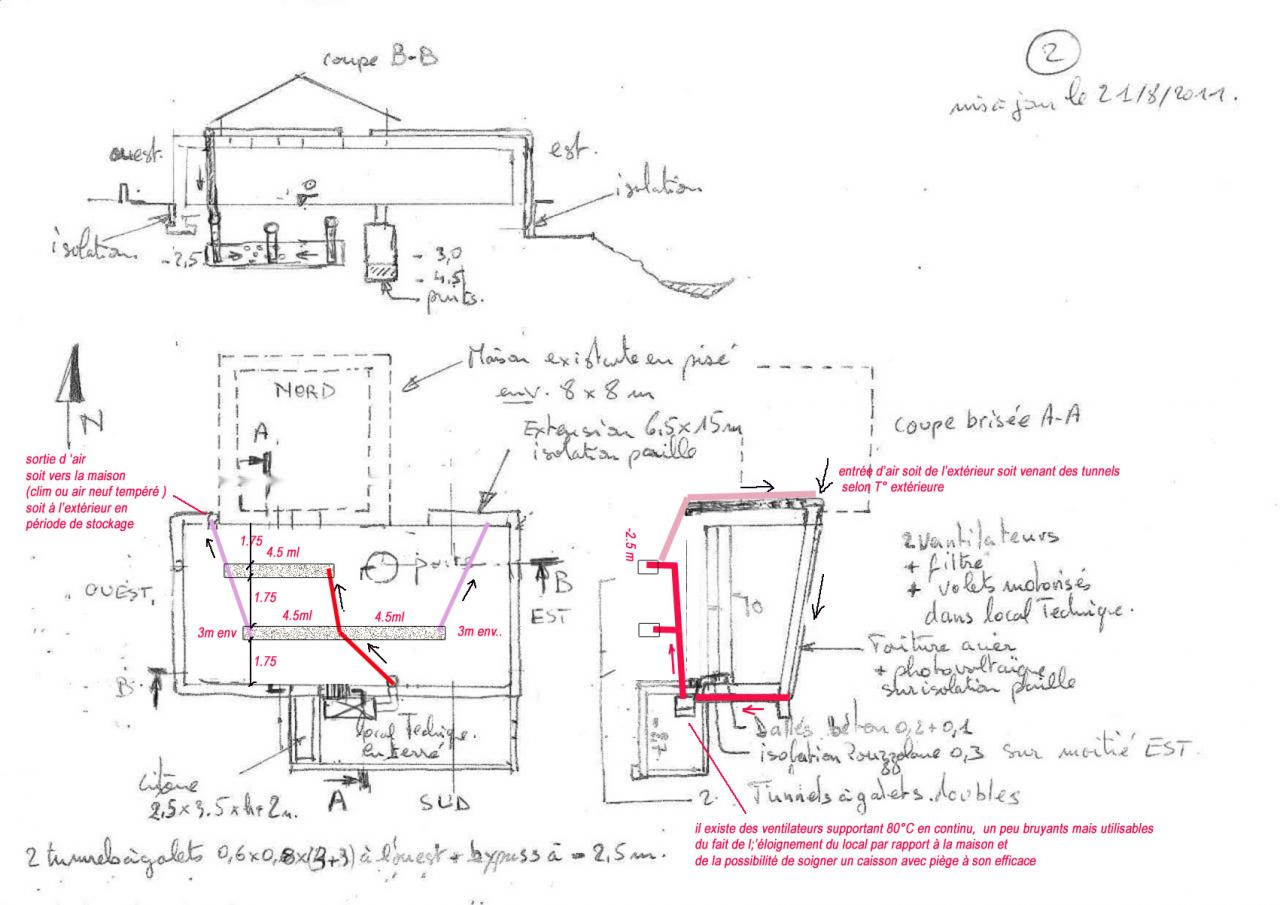 2
mis à jour le 21/8/2011.
coupe B-B
ouest.
est.
isolation
isolation
-2,5
0
- 3,0
- 4,5
puits.
N
NORD
Maison existante en pisé
env. 8 x 8 m
Extension 6,5 x 15 m
isolation paille
A
coupe brisée A-A
sortie d 'air
soit vers la maison
(clim ou air neuf tempéré )
soit à l'extérieur en
période de stockage
entrée d'air soit de l'extérieur soit venant des tunnels
selon T° extérieure
-2.5 m
1.75
4.5 ml
puits
B
EST
OUEST.
1.75
4.5ml
4.5ml
3m env
3m env..
1.75
B
2 vantilateurs
+ filtre
+ volets motorisés
dans local Technique.
Toiture acier
+ photovoltaïque
sur isolation paille
local Technique.
enterré
Dalles béton 0,2 + 0,1
isolation Pouzzolane 0,3 sur moitié EST.
2 Tunnels à galets doubles
Citerne
2,5 x 3.5 x h+2m.
A
SUD
il existe des ventilateurs supportant 80°C en continu, un peu bruyants mais utilisables
du fait de l;'éloignement du local par rapport à la maison et
de la possibilité de soigner un caisson avec piège à son efficace
2 tunnels à galets 0,6 x 0,8 x (3+3) à l'ouest + bypass à - 2,5 m.